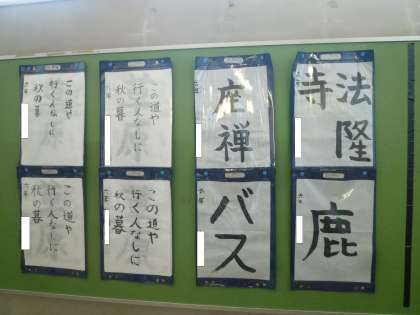 法隆
寺
座禅
この道や
行く人なしに
秋の暮
六年
この道や
行く人なしに
秋の暮
六年
鹿
六年
バス
六年
この道や
行く人なしに
秋の暮
六年
この道や
行く人なしに
秋の暮
六年